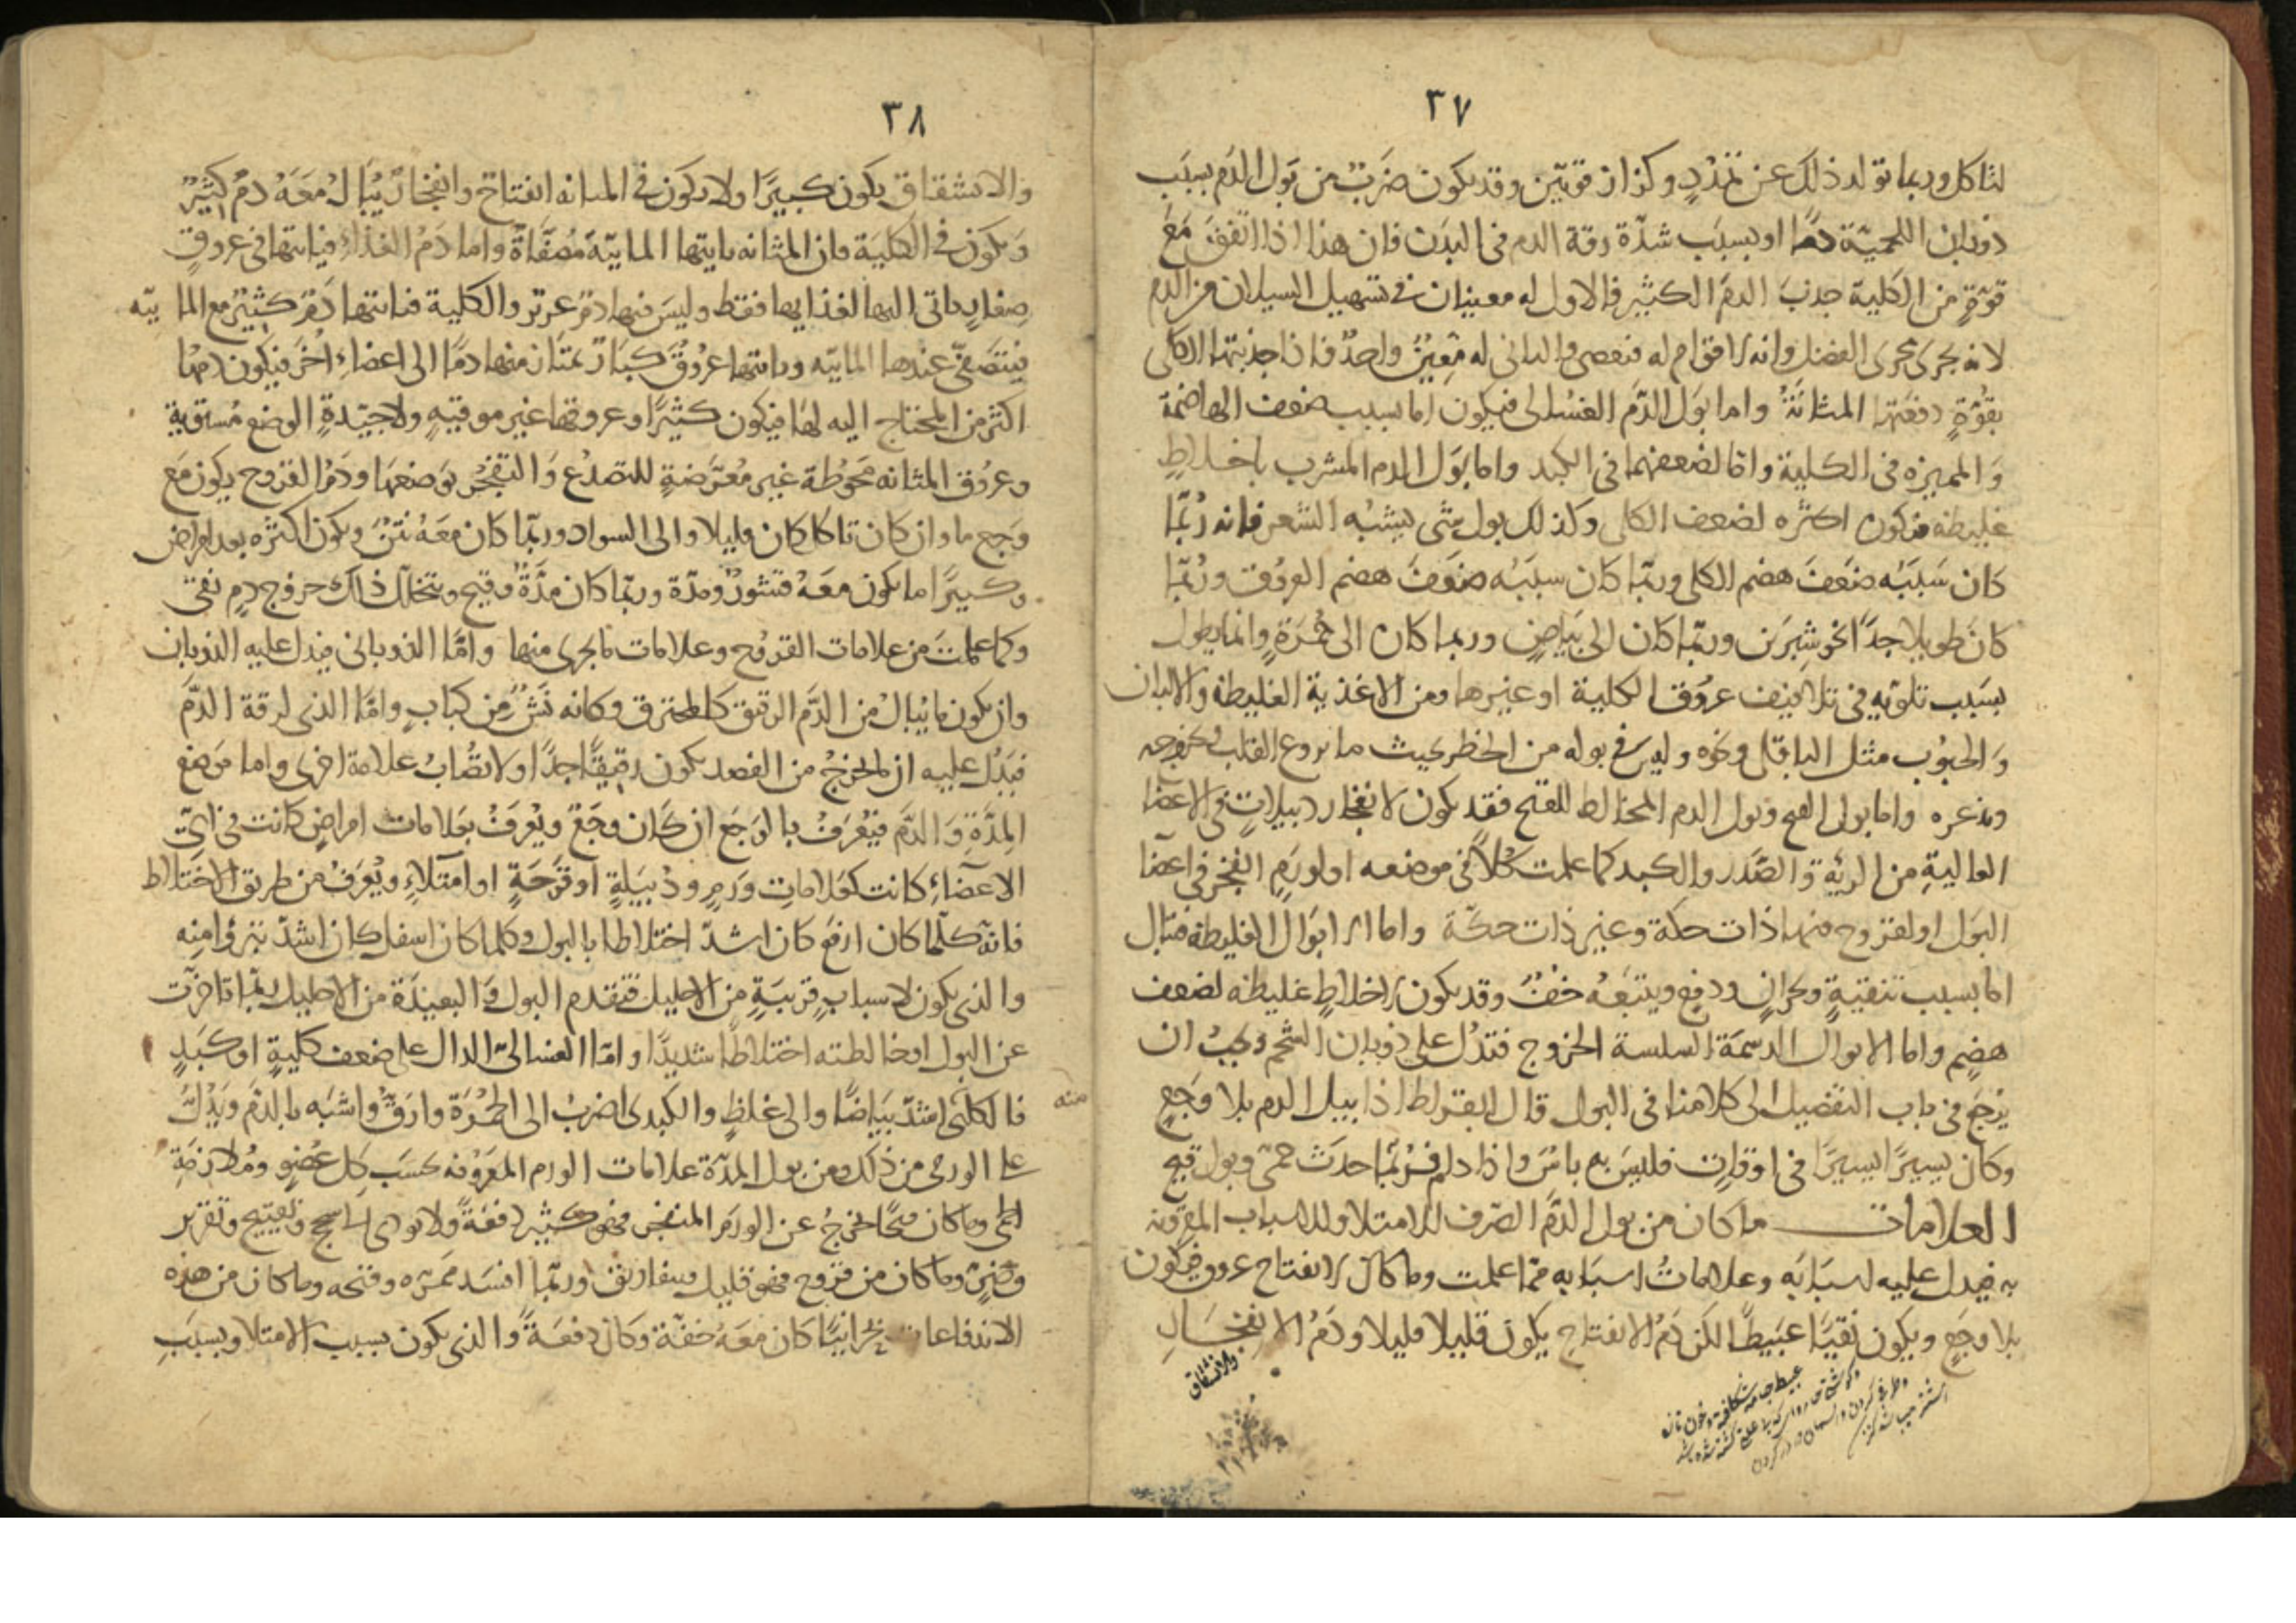 ٣٧
لتاكل وربما تولد ذلك عن تمدد وكزاز قويين وقد يكون ضرب من بول الدم بسبب
ذوبان اللحمية دما او بسبب شدة رقة الدم فى البدن فان هذا اذا اتفق مع
قوة من الكلية جذب الدم الكثير فالاول له معينان فى تسهيل السيلان من الدم
لانه يجرى مجرى الفضل وانه لا قوام له فيعصى والثانى له معين واحد فاذا جذبتها الكلى
بقوة دفعتها المثانة واما بول الدم الغسالى فيكون اما بسبب ضعف الهاضمة
والمميزه فى الكلية واما لضعفهما فى الكبد واما بول الدم المشرب باخلاط
غليظه فيكون اكثره لضعف الكلى وكذلك بول شى يشبه الشعر فانه ربما
كان سببه ضعف هضم الكلى وربما كان سببه ضعف هضم العروق وربما
كان طويلا جدا نحو شبرين وربما كان الى بياض وربما كان الى حمرة وانما يطول
بسبب تلويه فى تلافيف عروق الكلية او غيرها ومن الاغذية الغليظه والالبان
والحبوب مثل الباقلى ونحوه وليس فى بوله من الخطر بحيث ما يروع القلب بخروجه
وبذعره واما بول القيح وبول الدم المخالط للقيح فقد يكون لانفجار دبيلات فى الاعضا
العالية من الرئة والصدر والكبد كما علمت كلا فى موضعه او لورم انفجر فى اعضا
البول او لقروح فيها ذات حكة وغير ذات حكة واما الابوال الغليظه فتبال
اما بسبب تنقية وبحران ودفع ويتبعه خف وقد يكون لاخلاط غليظه لضعف
هضم واما الابوال الدسمة السلسة الخروج فتدل على ذوبان الشحم ويجب ان
يرجع فى باب التفصيل الى كلامنا فى البول قال ابقراط اذا بيل الدم بلا وجع
وكان يسيرا يسيرا فى اوقات فليس به باس واذا دام فربما حدث حمى وبول قيح
العلامات ما كان من بول الدم الصرف للامتلا وللاسباب المقرونه
به فيدل عليه اسبابه وعلامات اسبابه مما علمت وما كان لانفتاح عروق فيكون
بلا وجع ويكون نقيا عبيطا لكن دم الانفتاح يكون قليلا قليلا ودم الانفجار
والانشقاق
٣٨
والانشقاق يكون كبيرا ولا يكون فى المثانه انفتاح وانفجار يبال معه دم كثير
ويكون فى الكلية فان المثانه ياتيها المايية مصفاة واما دم الغذاء فياتيها فى عروق
صغار ياتى اليها لغذايها فقط وليس فيها دم غزير والكلية فياتيها دم كثير مع المايية
فيتصفى عندها المايية وياتيها عروق كبار تمتار منها دما الى اعضاء اخر فيكون دمها
اكثر من المحتاج اليه لها فيكون كثيرا وعروقها غير موقية ولا جيدة الوضع مستوية
وعروق المثانه محوطة غير معرضة للتصدع والتفجر بوضعها ودم القروح يكون مع
وجع ما وان كان تاكل كان قليلا والى السواد وربما كان معه نتن ويكون اكثره بعد امراض
وكثيرا ما يكون معه قشور ومدة وربما كان مدة وقيح ويتخلل ذلك خروج دم نقى
وكما علمت من علامات القروح وعلامات ما يجرى منها واما الذوبانى فيدل عليه الذوبان
وان يكون ما يبال من الدم الرقيق كالمحترق وكانه نش من كباب واما الذى لرقة الدم
فيدل عليه ان المخرج من الفصد يكون رقيقا جدا ولا تصاب علامة اخرى واما موضع
المدة والدم فيعرف بالوجع ان كان وجع ويعرف بعلامات امراض كانت فى اى
الاعضاء كانت كعلامات ورم ودبيلة او قرحة او امتلاء ويعرف من طريق الاختلاط
فانه كلما كان ارفع كان اشد اختلاطا بالبول وكلما كان اسفل كان اشد تبرؤا منه
والذى يكون لاسباب قريبة من الاحليل فتقدم البول والبعيدة من الاحليل ربما تاخرت
عن البول او خالطته اختلاطا شديدا واما الغسالى الدال على ضعف كلية او كبد
فالكلى اشد بياضا والى غلظ والكبدى اضرب الى الحمرة وارق واشبه بالدم ويدل
على الورمى من ذلك ومن بول المدة علامات الورم المعروفه بحسب كل عضو وملازمة
الحمى وما كان قيحا يخرج عن الورم المنفجر فهو كثير دفعة ولا يودى الى سحج وتقييح وتقزير
وضرر وما كان من قروح فهو قليل وبتفاريق وربما افسد ممره وقيحه وما كان من هذه
الاندفاعات بحرانيا كان معه خفة وكان دفعة والذى يكون بسبب الامتلا وبسبب
منه